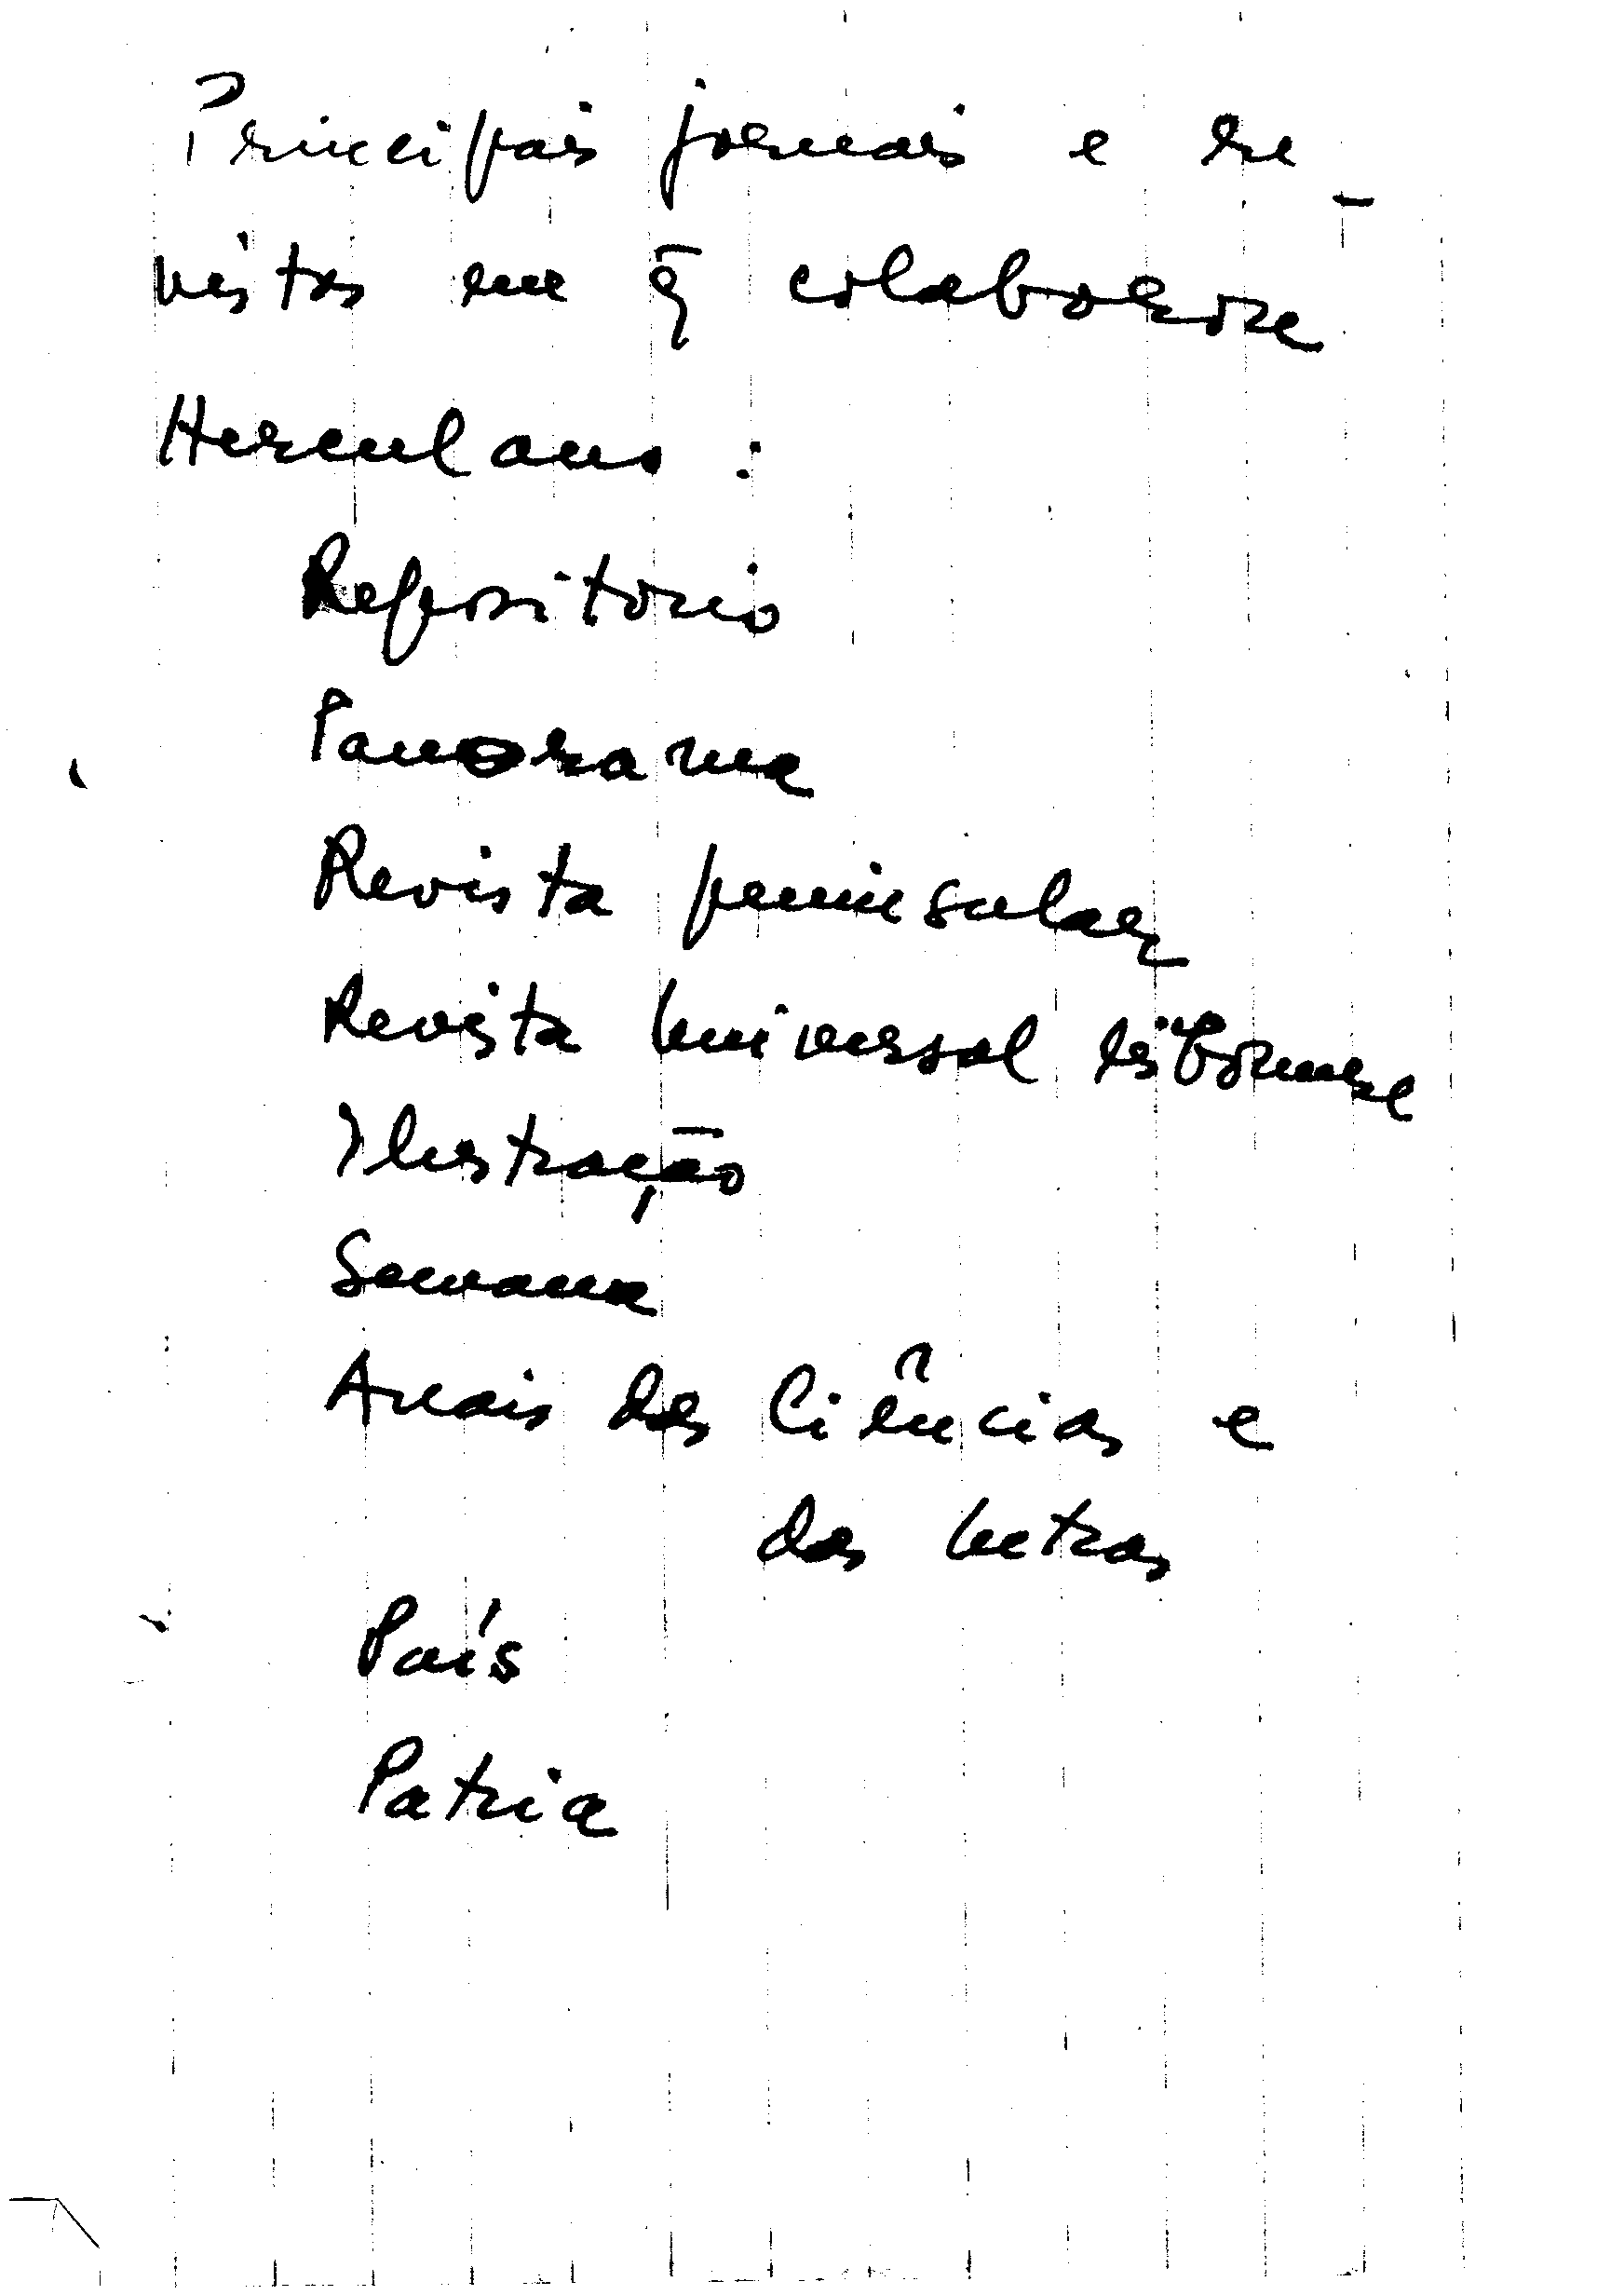 Principais jornais e re_
vistas em q̃ colaborou
Herculano :
Repositorio
Panorama
Revista peninsular
Revista Universal lisbonense
Ilustração
Semana
Anais das Ciências e
das Letras
País
Patria